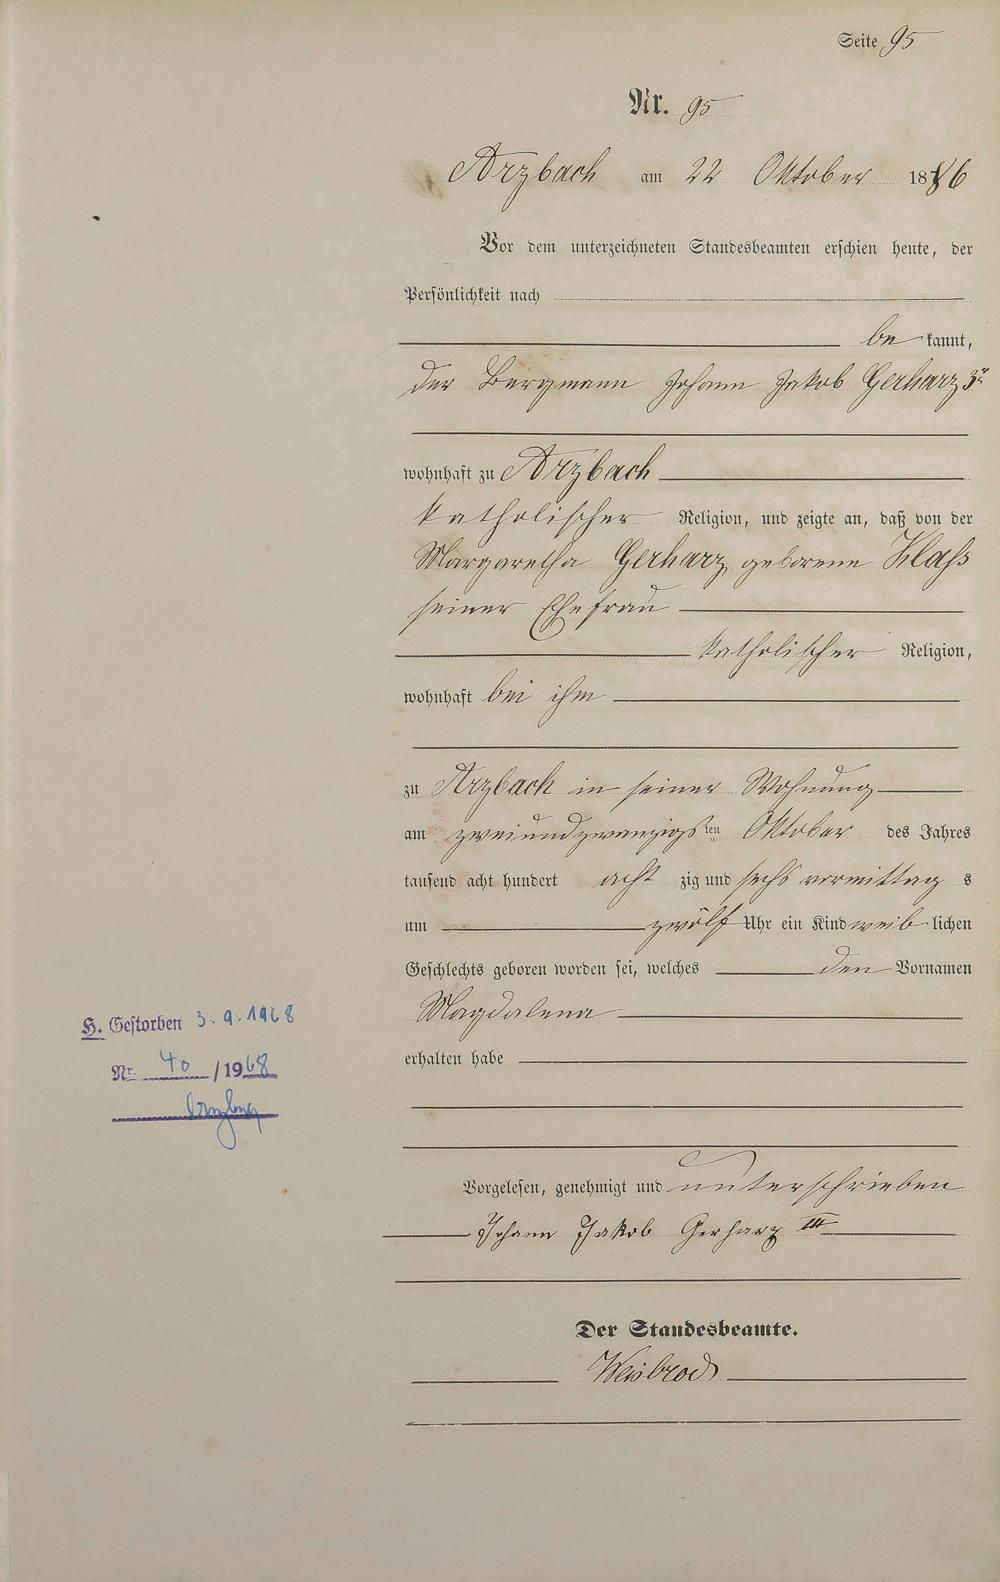 Seite 95
Nr. 95
Arzbach am 22 Oktober 1886
Vor dem unterzeichneten Standesbeamten erschien heute, der
Persönlichkeit nach
be kannt,
der Bergmann Johann Jakob Gerharz 3r
wohnhaft zu Arzbach
katholischer Religion, und zeigte an, daß von der
Margaretha Gerharz geborene Klaß
seiner Ehefrau
katholischer Religion,
wohnhaft bei ihm
zu Arzbach in seiner Wohnung
am zweiundzwanzigsten Oktober des Jahres
tausend acht hundert acht zig und sechs vormittag s
um zwölf Uhr ein Kind weib lichen
Geschlechts geboren worden sei, welches den Vornamen
Magdalena
H. Gestorben 3.9.1968
erhalten habe
Nr. 40 /1968
Vorgelesen, genehmigt und unterschrieben
Johann Jakob Gerharz III
Der Standesbeamte.
Weisbrod